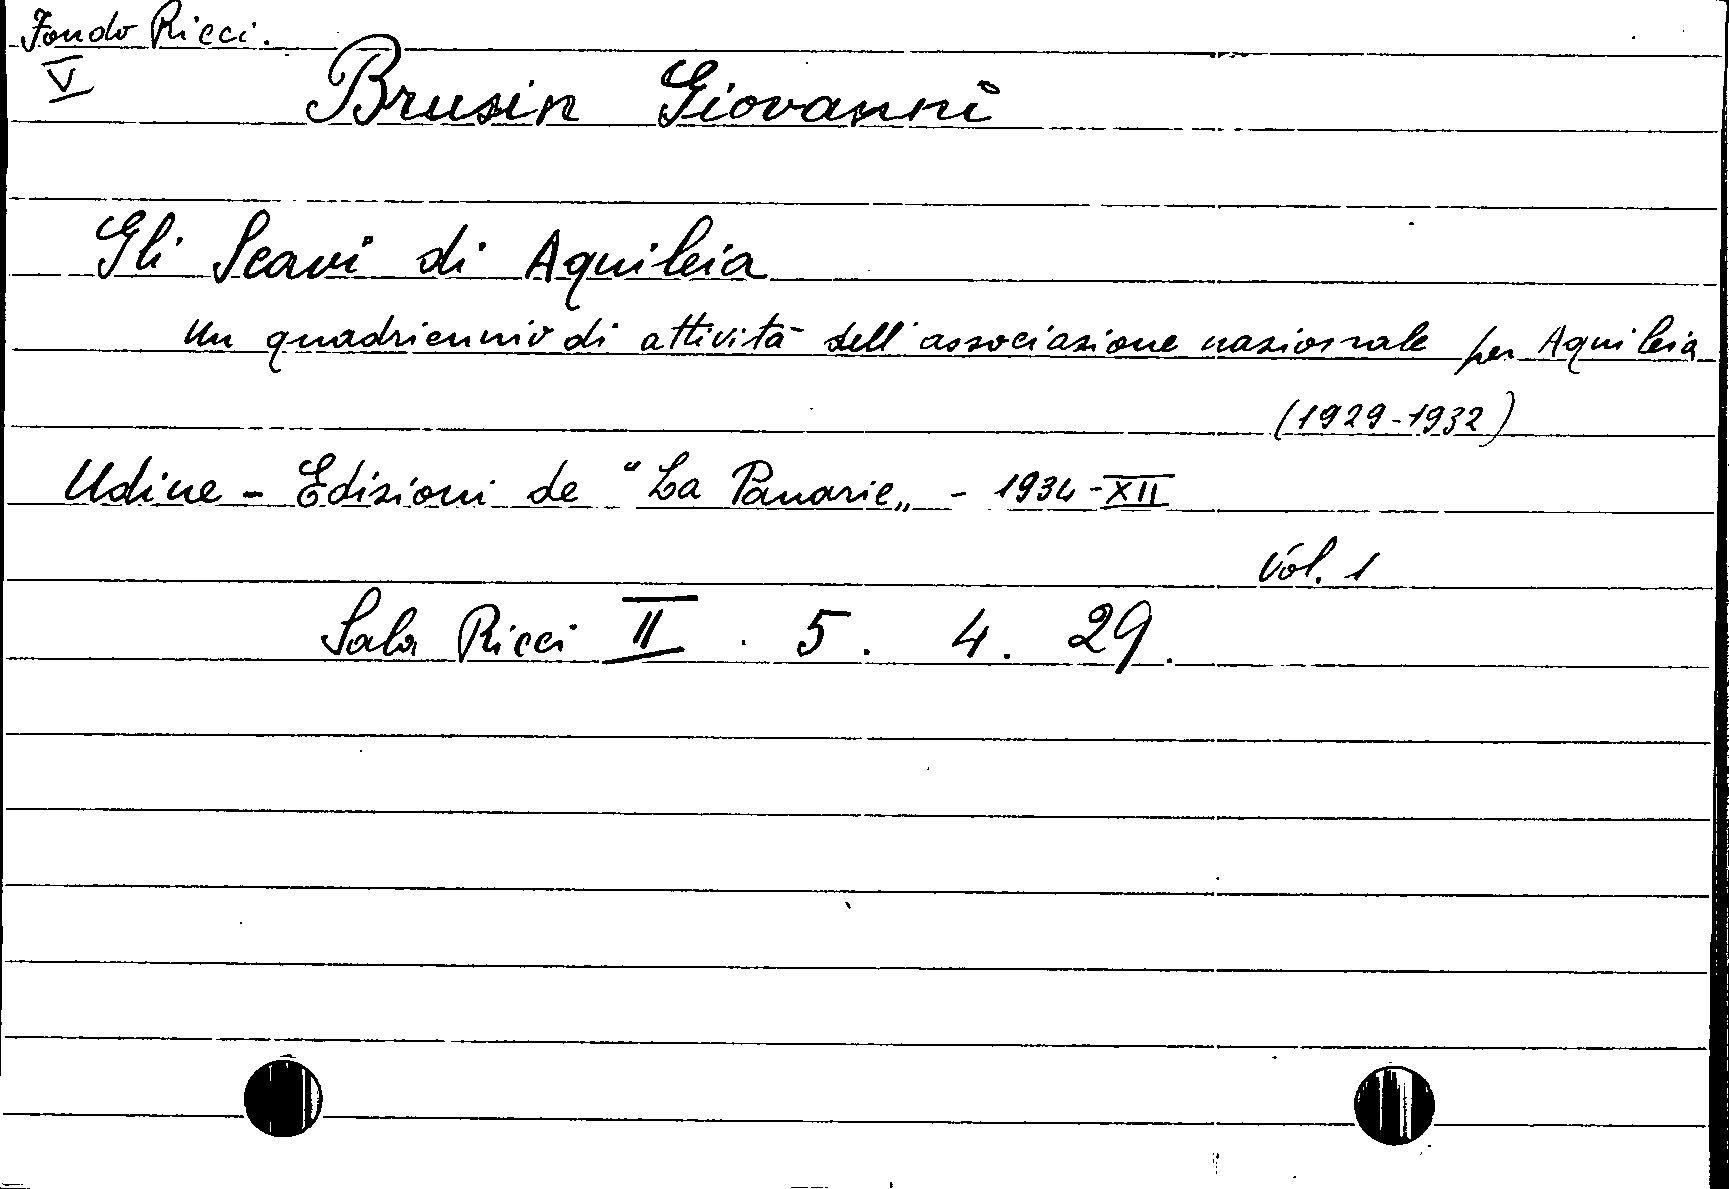 Fondo Ricci.
V
Brusin Giovanni
Gli Scavi di Aquileia
Un quadriennio di attività dell'associazione nazionale per Aquileia
(1929-1932)
Udine - Edizioni de "La Panarie„ - 1934-XII
Vol. 1
Sala Ricci II . 5 . 4 . 29.